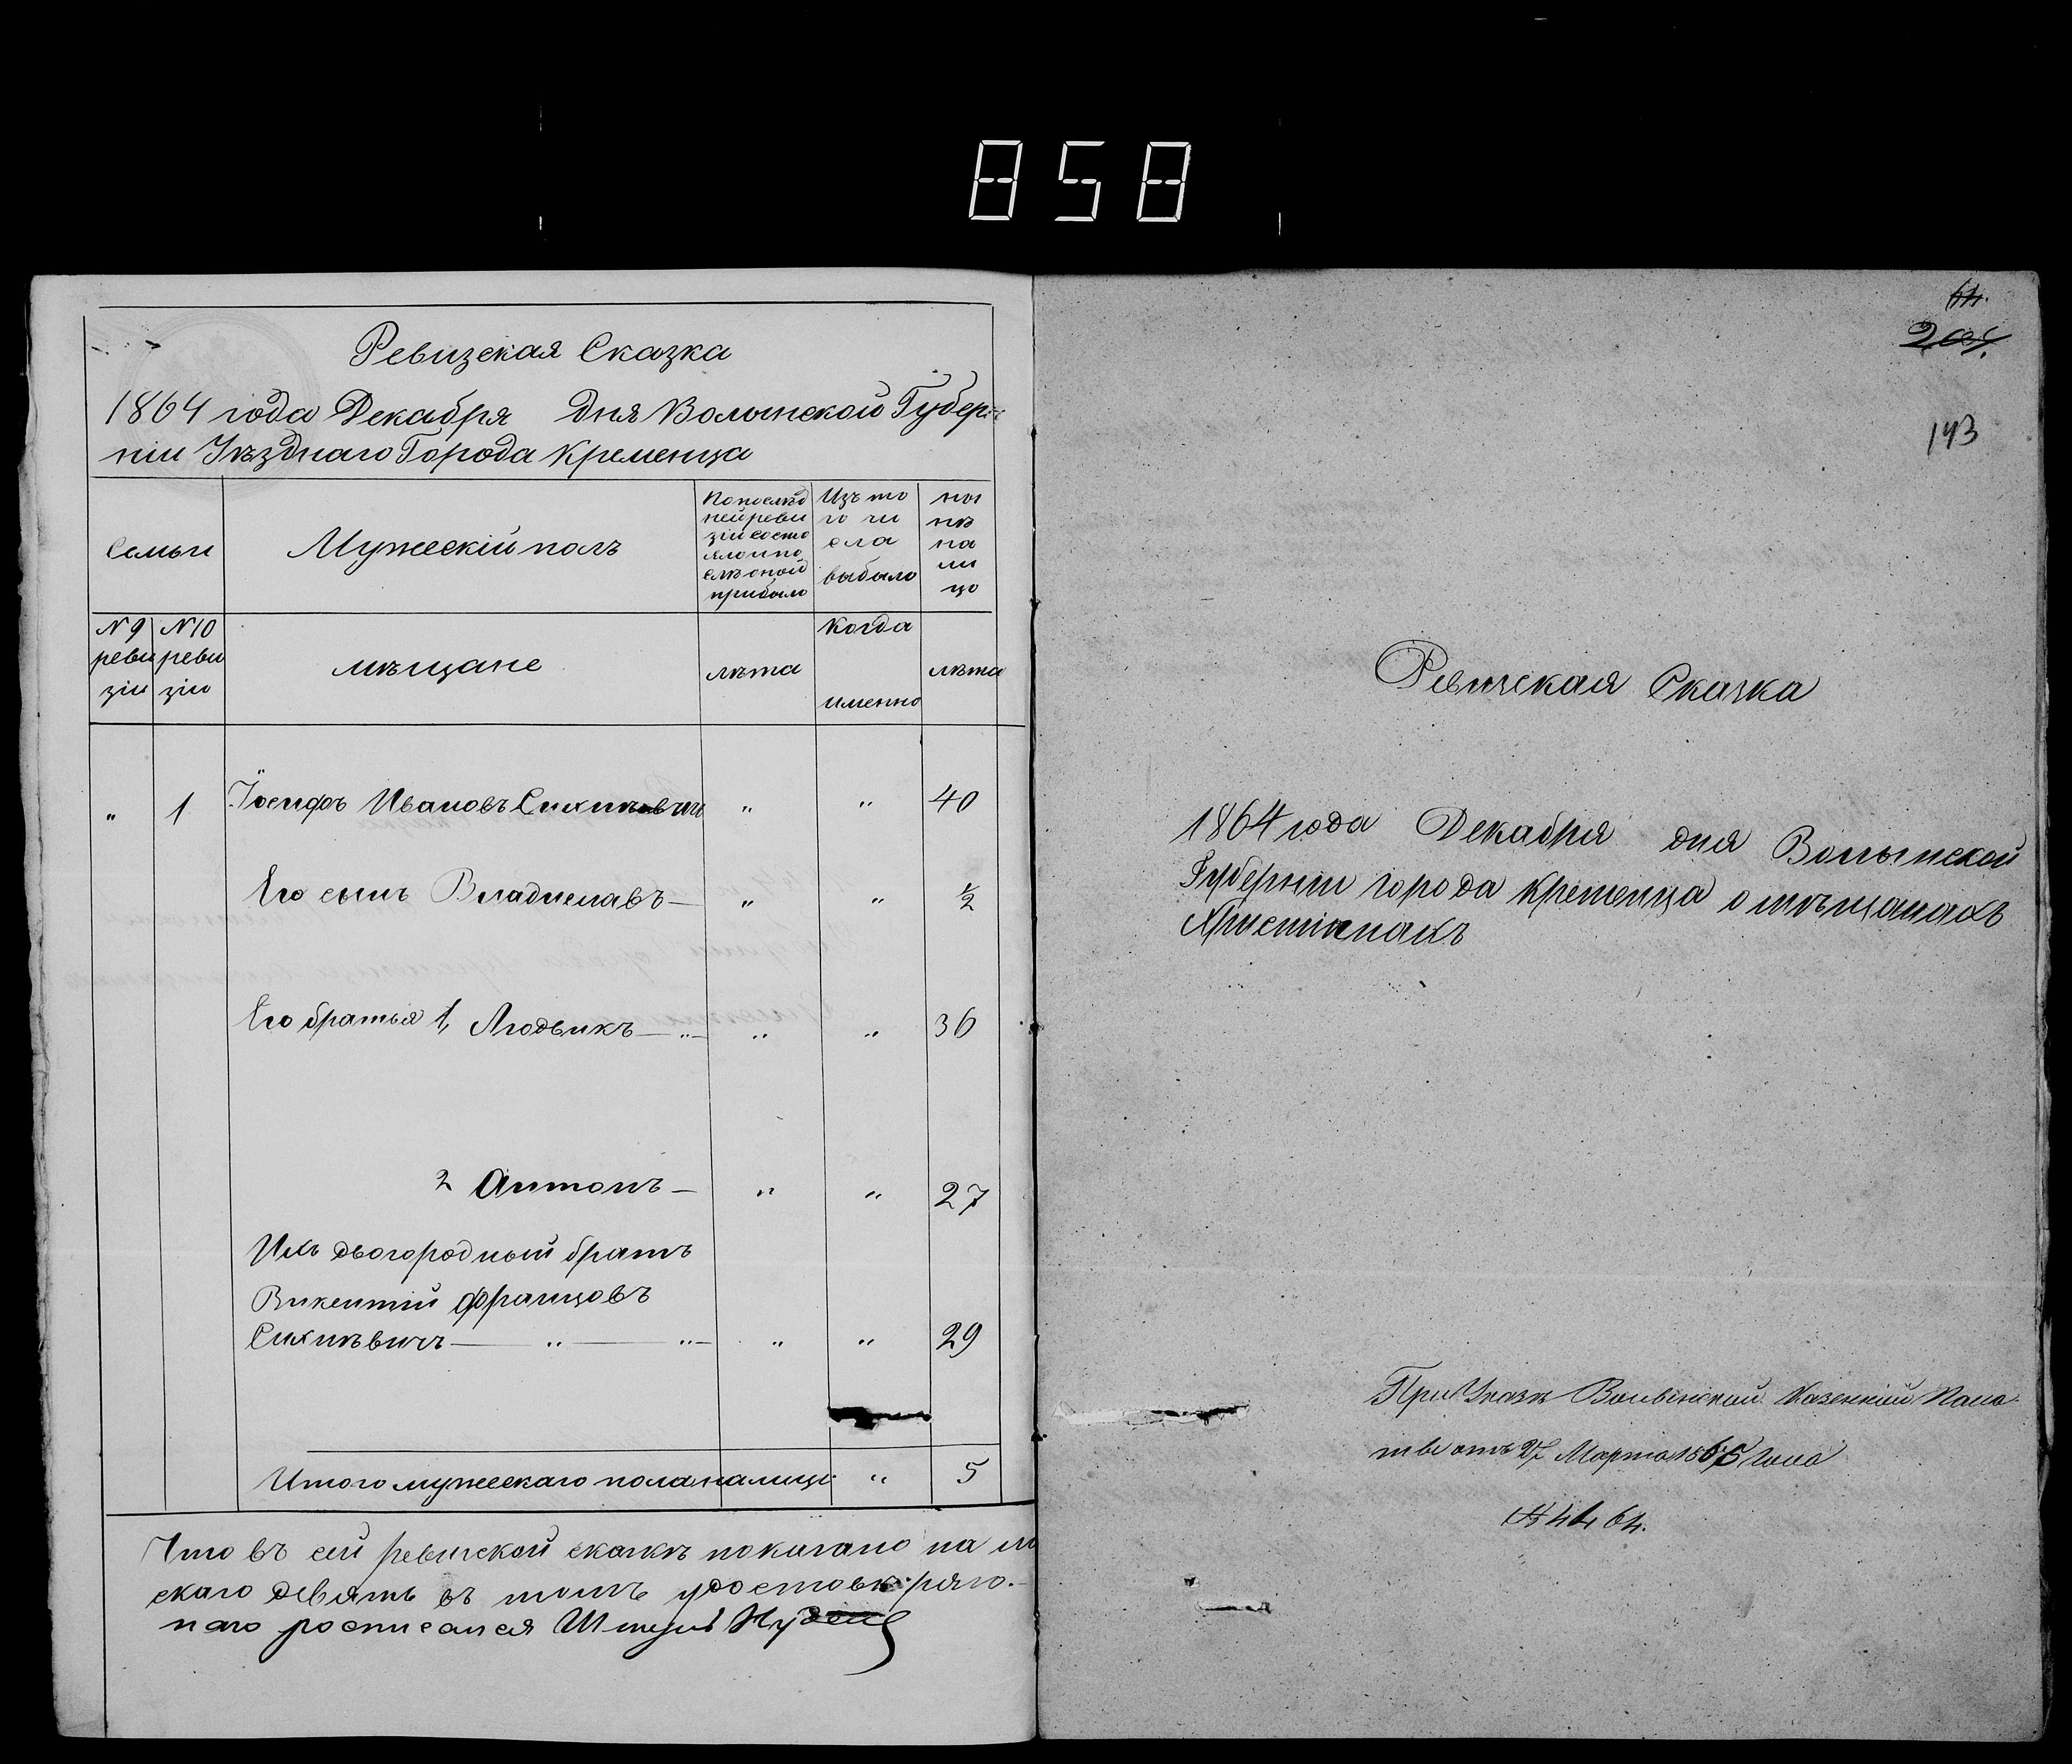 858
Ревизская Сказка
1864 года Декабря дня Волынской Губер-
ніи Уѣзднаго Города Кременца
Семьи
Мужескій полъ
По послѣд
ней реви
зіи состо
яло и по
слѣ оной
прибыло
Изъ то
го чи
сла
выбыло
ны
нѣ
на
ли
цо
№ 9
реви
зіи
№ 10
реви
зіи
мѣщане
лѣта
когда
именно
лѣта
„ 1 Іосифъ Ивановъ „ „ 40
Его сынъ Владиславъ — „ „ ½
Его братья 1, Людвикъ — „ — „ „ 36
2 Антонъ — „ „ 27
Ихъ двогородный братъ
Викентій Францовъ
Сихнѣвичъ — „ — „ — „ „ 29
Итого мужескаго пола налицо „ 5
Что въ сей ревизской сказкѣ показано на
скаго девять въ томъ
росписался
64.
143
Ревизская Сказка
1864 года Декабря дня Волынской
Губерніи города Кременца о мѣщанахъ
Христіанахъ
При Указѣ Волынской Казенной Пала
ты отъ Марта 1865 года
№ 4464.